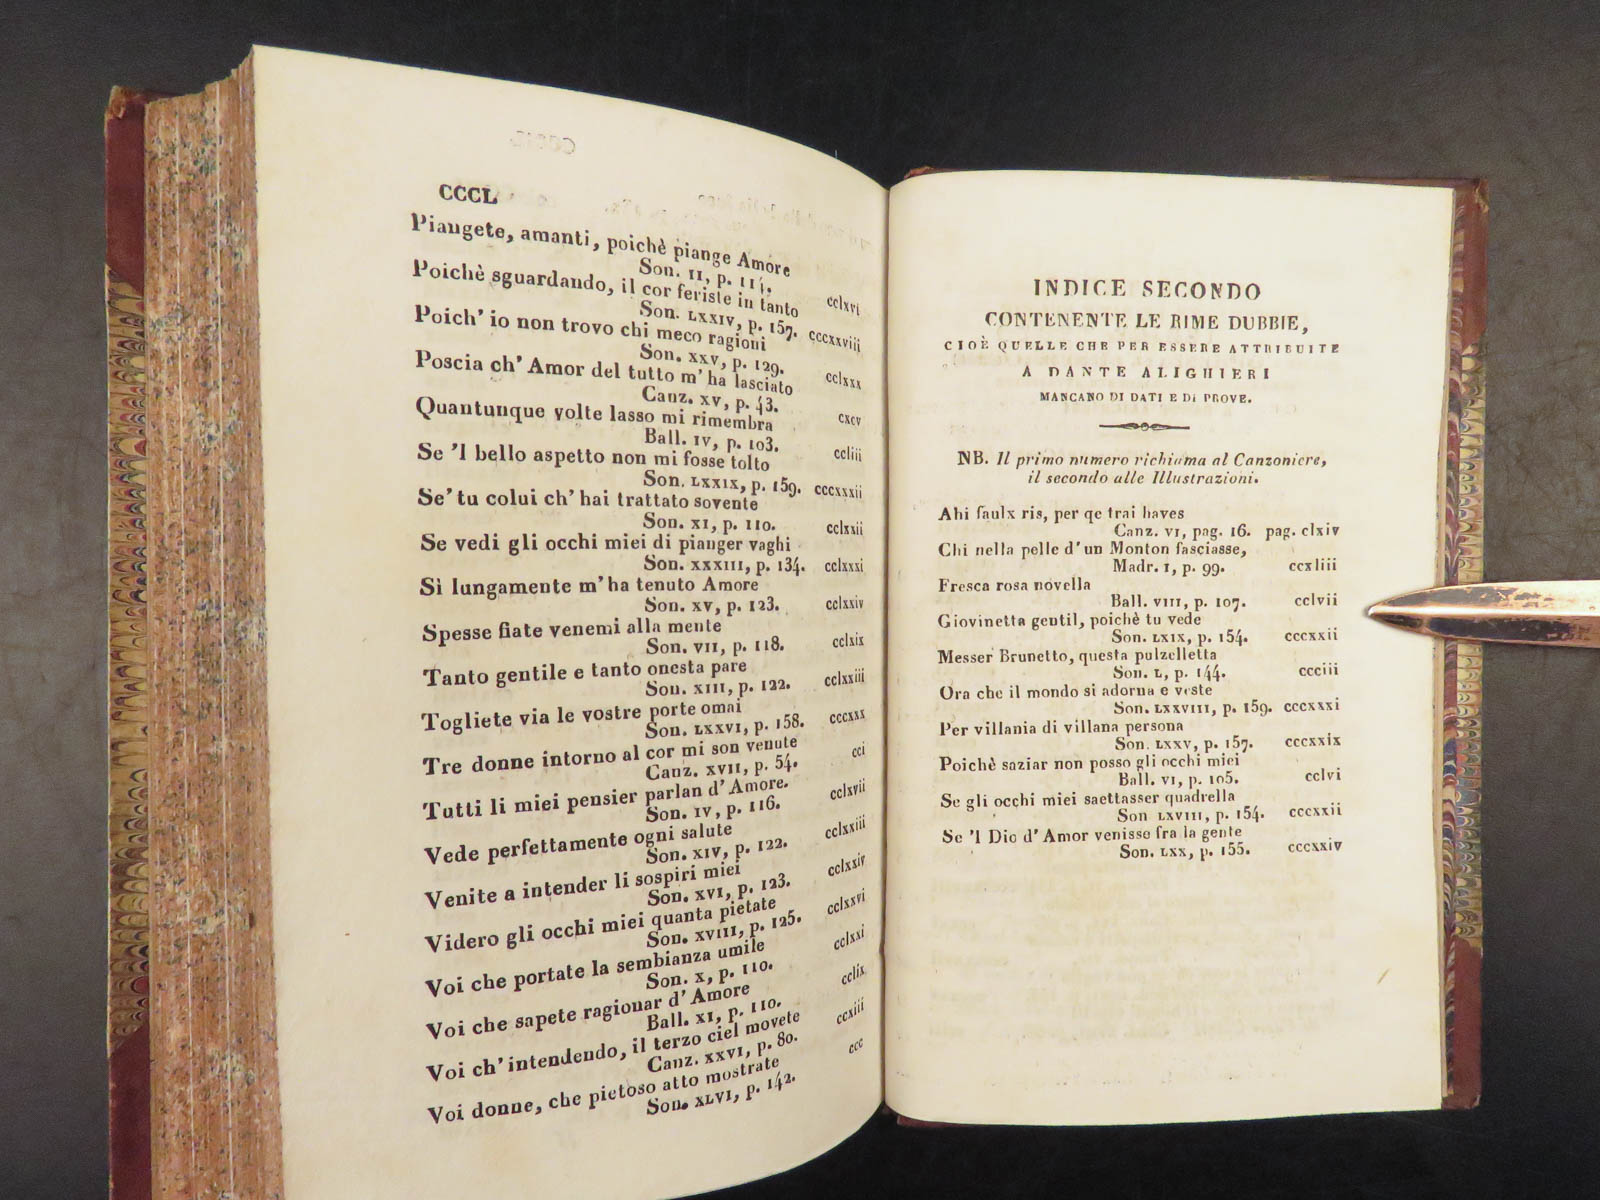 CCCL
Piangete, amanti, poichè piange Amore
Son. II, p. 114. cclxvi
Poichè sguardando, il cor feriste in tanto
Son. LXXIV, p. 157. cccxxviii
Poich' io non trovo chi meco ragioni
Son. XXV, p. 129. cclxxx
Poscia ch' Amor del tutto m' ha lasciato
Canz. XV, p. 43. cxcv
Quantunque volte lasso mi rimembra
Ball. IV, p. 103. ccliii
Se 'l bello aspetto non mi fosse tolto
Son. LXXIX, p. 159. cccxxxii
Se' tu colui ch' hai trattato sovente
Son. XI, p. 110. cclxxii
Se vedi gli occhi miei di pianger vaghi
Son. XXXIII, p. 134. cclxxxi
Sì lungamente m' ha tenuto Amore
Son. XV, p. 123. cclxxiv
Spesse fiate venemi alla mente
Son. VII, p. 118. cclxix
Tanto gentile e tanto onesta pare
Son. XIII, p. 122. cclxxiii
Togliete via le vostre porte omai
Son. LXXVI, p. 158. cccxxx
Tre donne intorno al cor mi son venute
Canz. XVII, p. 54. cci
Tutti li miei pensier parlan d' Amore.
Son. IV, p. 116. cclxvii
Vede perfettamente ogni salute
Son. XIV, p. 122. cclxxiii
Venite a intender li sospiri miei
Son. XVI, p. 123. cclxxiv
Videro gli occhi miei quanta pietate
Son. XVIII, p. 125. cclxxvi
Voi che portate la sembianza umile
Son. X, p. 110. cclxxi
Voi che sapete ragionar d' Amore
Ball. XI, p. 110. cclix
Voi ch' intendendo, il terzo ciel movete
Canz. XXVI, p. 80. ccxiii
Voi donne, che pietoso atto mostrate
Son. XLVI, p. 142. ccc
INDICE SECONDO
CONTENENTE LE RIME DUBBIE,
CIOÈ QUELLE CHE PER ESSERE ATTRIBUITE
A DANTE ALIGHIERI
MANCANO DI DATI E DI PROVE.
NB. Il primo numero richiama al Canzoniere,
il secondo alle Illustrazioni.
Ahi faulx ris, per qe trai haves
Canz. VI, pag. 16. pag. clxiv
Chi nella pelle d' un Monton fasciasse,
Madr. I, p. 99. ccxliii
Fresca rosa novella
Ball. VIII, p. 107. cclvii
Giovinetta gentil, poichè tu vede
Son. LXIX, p. 154. cccxxii
Messer Brunetto, questa pulzelletta
Son. L, p. 144. ccciii
Ora che il mondo si adorna e veste
Son. LXXVIII, p. 159. cccxxxi
Per villania di villana persona
Son. LXXV, p. 157. cccxxix
Poichè saziar non posso gli occhi miei
Ball. VI, p. 105. cclvi
Se gli occhi miei saettasser quadrella
Son LXVIII, p. 154. cccxxii
Se 'l Dio d' Amor venisse fra la gente
Son. LXX, p. 155. cccxxiv